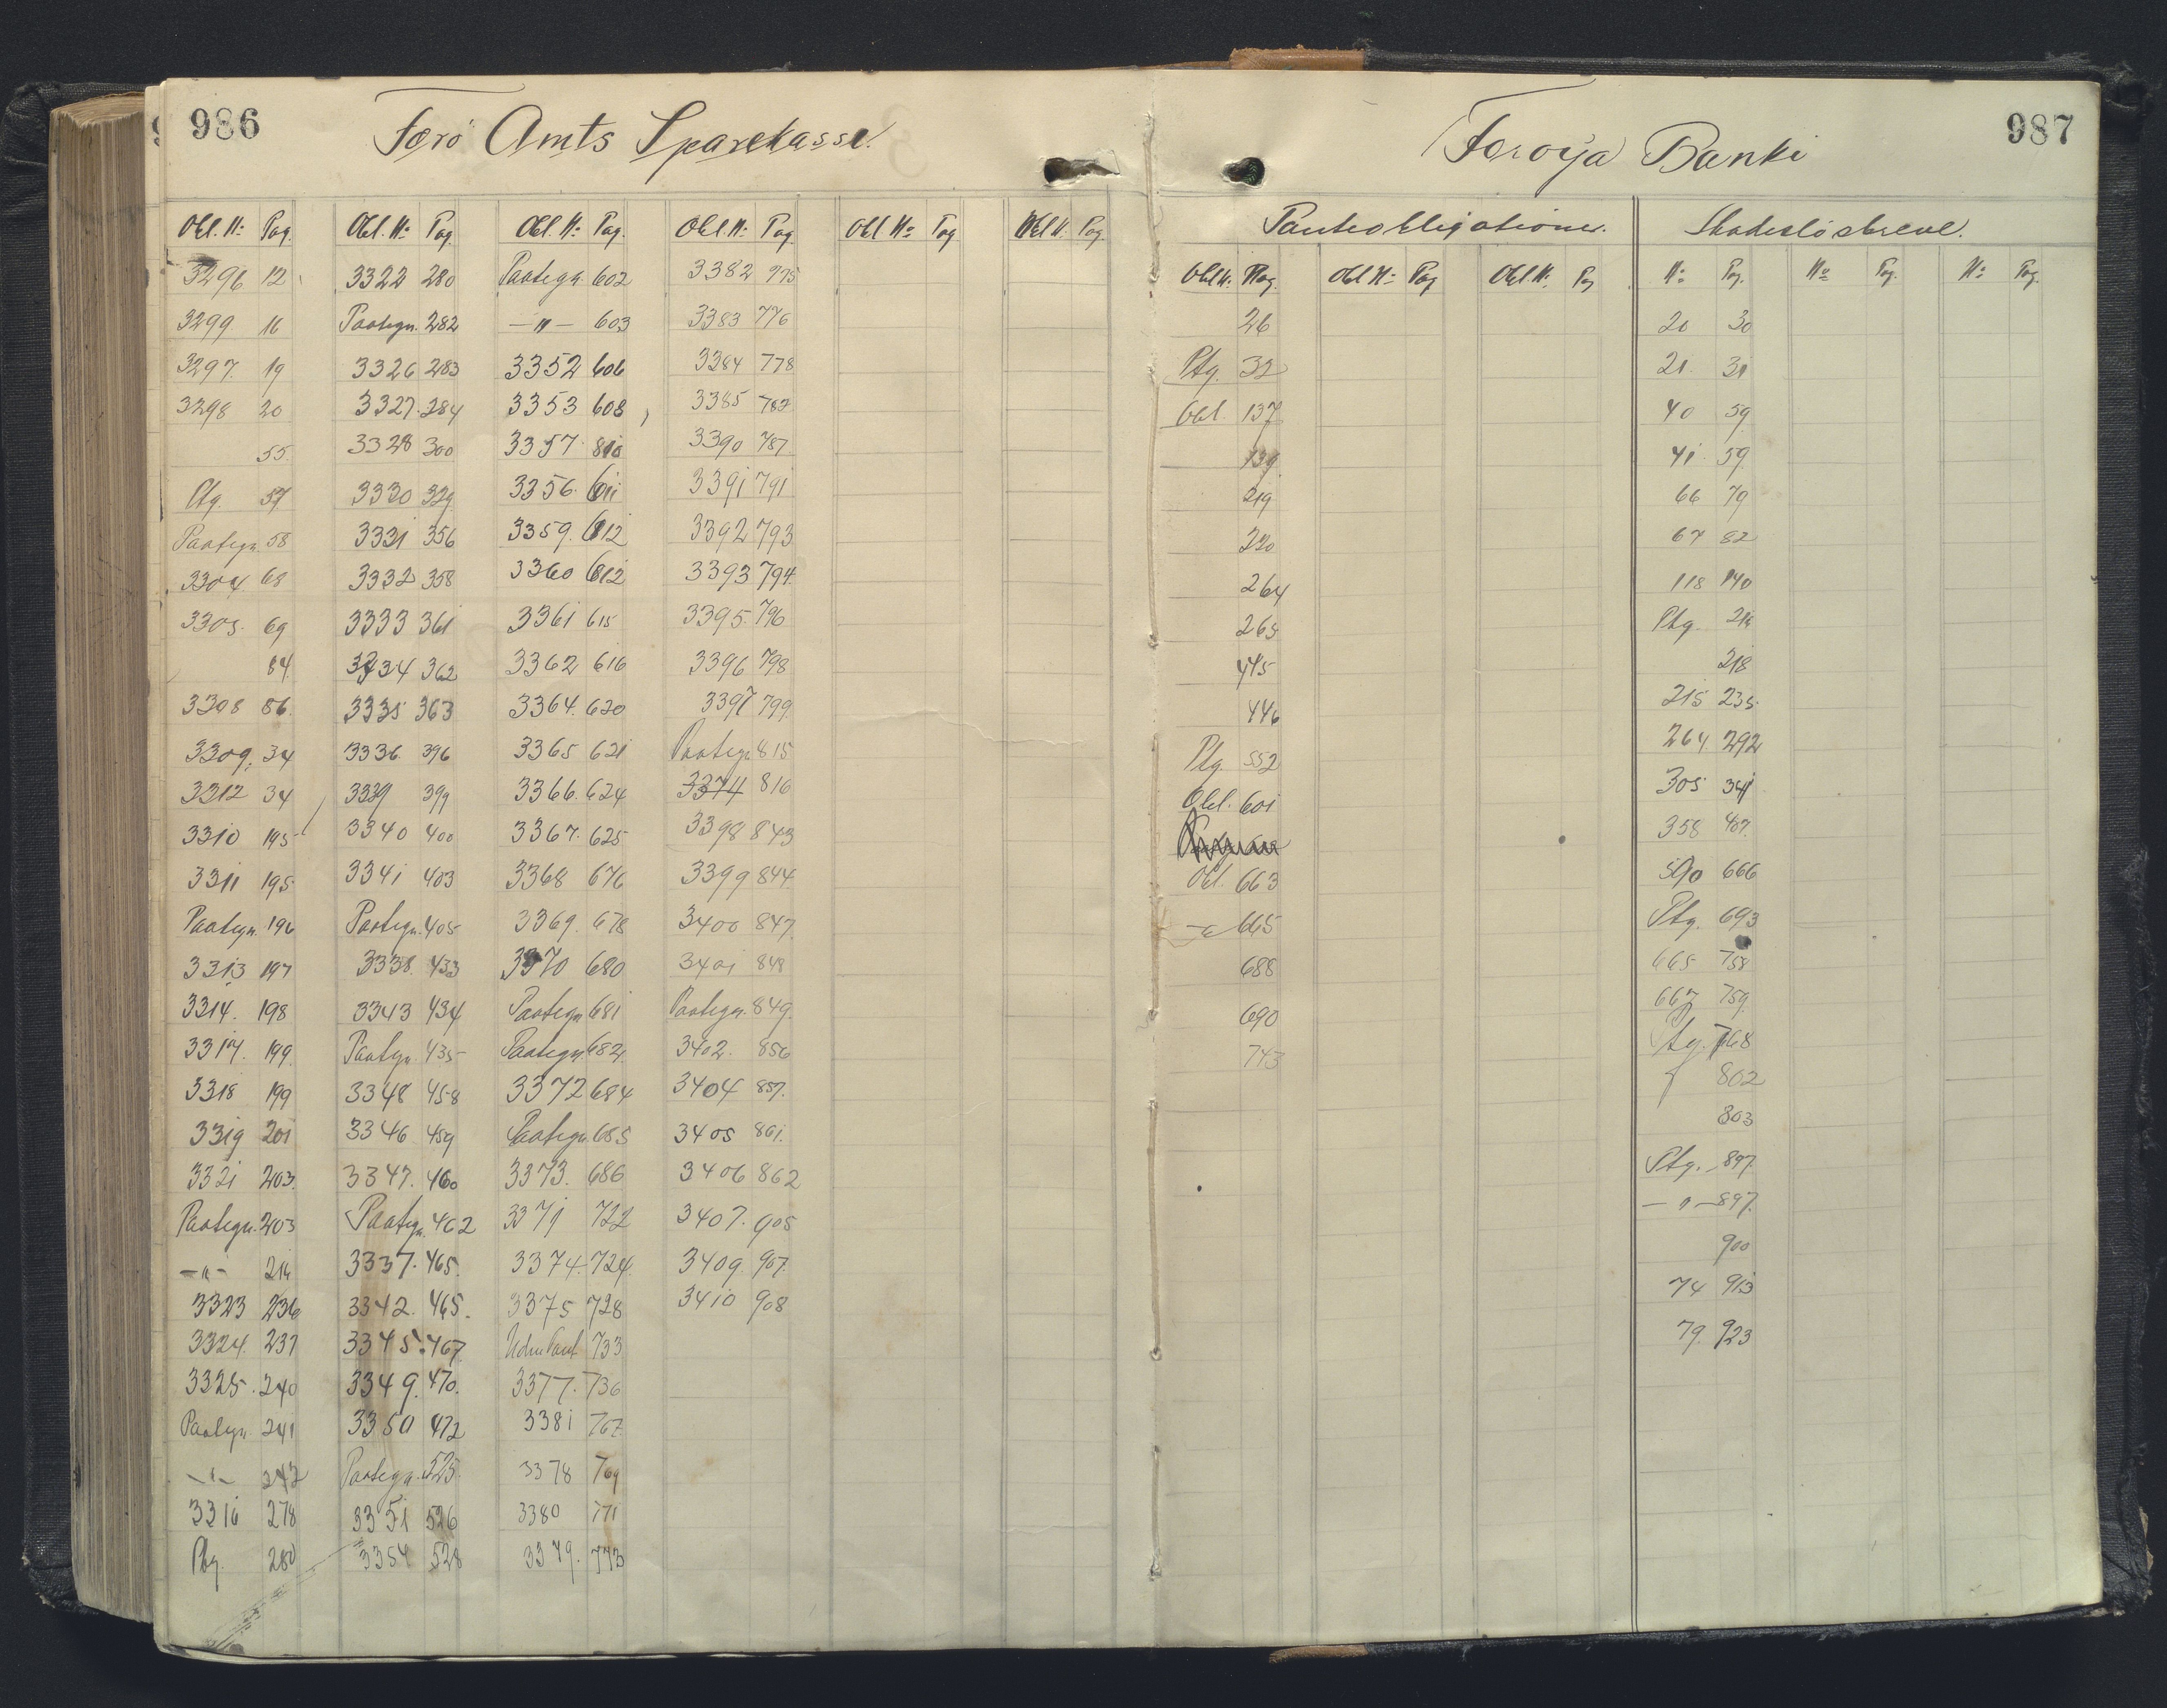 986
Færö Amts Sparekasse.
Obl. No: Pag. Obl. No: Pag. Obl. No: Pag. Obl. No: Pag. Obl No: Pag. Obl N. Pag.
3296 12 3322 280 Paategn. 602 3382 775
3299 16 Paategn. 282 — " — 603 3383 776
3297. 19 3326 283 3352 606 3384 778
3298 20 3327. 284 3353 608 3385 782
55. 3328 300 3357. 610 3390 787.
Ptg. 57 3330 329 3356. 611 3391 791
Paategn. 58 3331 356 3359. 612 3392 793
3304 68 3332 358 3360 612 3393 794.
3305. 69 3333 361 3361 615 3395. 796
84. 3334 362 3362 616 3396 798
3308 86. 3335 363 3364. 620 3397 799.
3309. 34 3336. 396 3365 621 Paategn 815
3312 34 3339 399 3366. 624 3374 816
3310 195 3340 400 3367. 625 3398 843
3311 195. 3341 403 3368 676 3399 844
Paategn. 196 Paategn. 405 3369. 678 3400 847.
3313 197 3338. 433 3370 680 3401 848
3314. 198 3343 434 Paategn 681 Paategn. 849.
3317. 199. Paategn. 435 Paategn 682. 3402. 856
3318 199 3348 458 3372 684 3404 857.
3319 201 3346 459 Paategn. 685 3405 861.
3321 203. 3347. 460 3373. 686 3406 862
Paategn. 203 Paategn. 462 3371 722 3407. 905
— " — 214 3337. 465. 3374. 724. 3409. 907.
3323 236 3342. 465. 3375 728 3410 908
3324. 237 3345. 467. 733
3325. 240 3349. 470. 3377. 736
Paategn 241 3350 472 3381 767
— " — 242 Paategn. 525. 3378 769
3316 278 3351 526 3380 771
Ptg. 280 3354 528 3379. 773
987
Føroya Banki
Panteobligationer. Skadesløsbreve.
Obl N. Pag. Obl N: Pag Obl. N. Pag No: Pag. No Pag. No: Pag.
26 20 30
Ptg. 32 21. 31
Obl. 137 40 59
139 41 59
219 66 79
220 67 82
264 118 140
265 Ptg. 214
445 218
446 215 235.
Ptg. 552 264. 292
Obl. 601 305 341
358 407.
Obl. 663 590 666
665 Ptg. 693
688 665 758
690 667 759.
743 Ptg. 768
802
803
Ptg. 897.
— " — 897.
900
74 913
79. 923